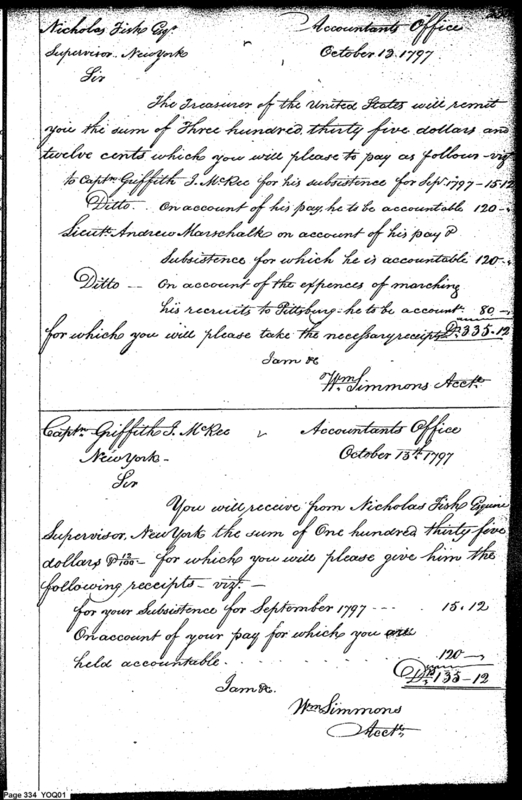 Nicholas Fish Esqr. Accountants Office
Supervisor New York October 13. 1797
Sir
The Treasurer of the United States will remit
you the sum of Three hundred, thirty five dollars and
twelve cents which you will please to pay as follows vizt
to Captn. Griffith J. McRee for his subsistence for Sept. 1797 - 15.12
Ditto - On account of his pay, he to be accountable 120 -
Lieutt. Andrew Marschalk on account of his pay &
Subsistence for which he is accountable 120 -
Ditto - - On account of the expences of marching
his recruits to Pittsburg - he to be accountt. 80 -
for which you will please take the necessary receipts Drs. 335.12
I am &c
Wm. Simmons Acctt.
Captn. Griffith J. McRee Accountants Office
New York - October 13th. 1797
Sir
You will receive from Nicholas Fish Esquire
Supervisor, New York the sum of One hundred thirty five
dollars & 12/100 - for which you will please give him the
following receipts - vizt. -
for your Subsistence for September 1797 - - - 15.12
On account of your pay for which you are
held accountable 120 -
Drs. 135 - 12
I am &c.
Wm Simmons
Acctt.
Page 334 YOQ01